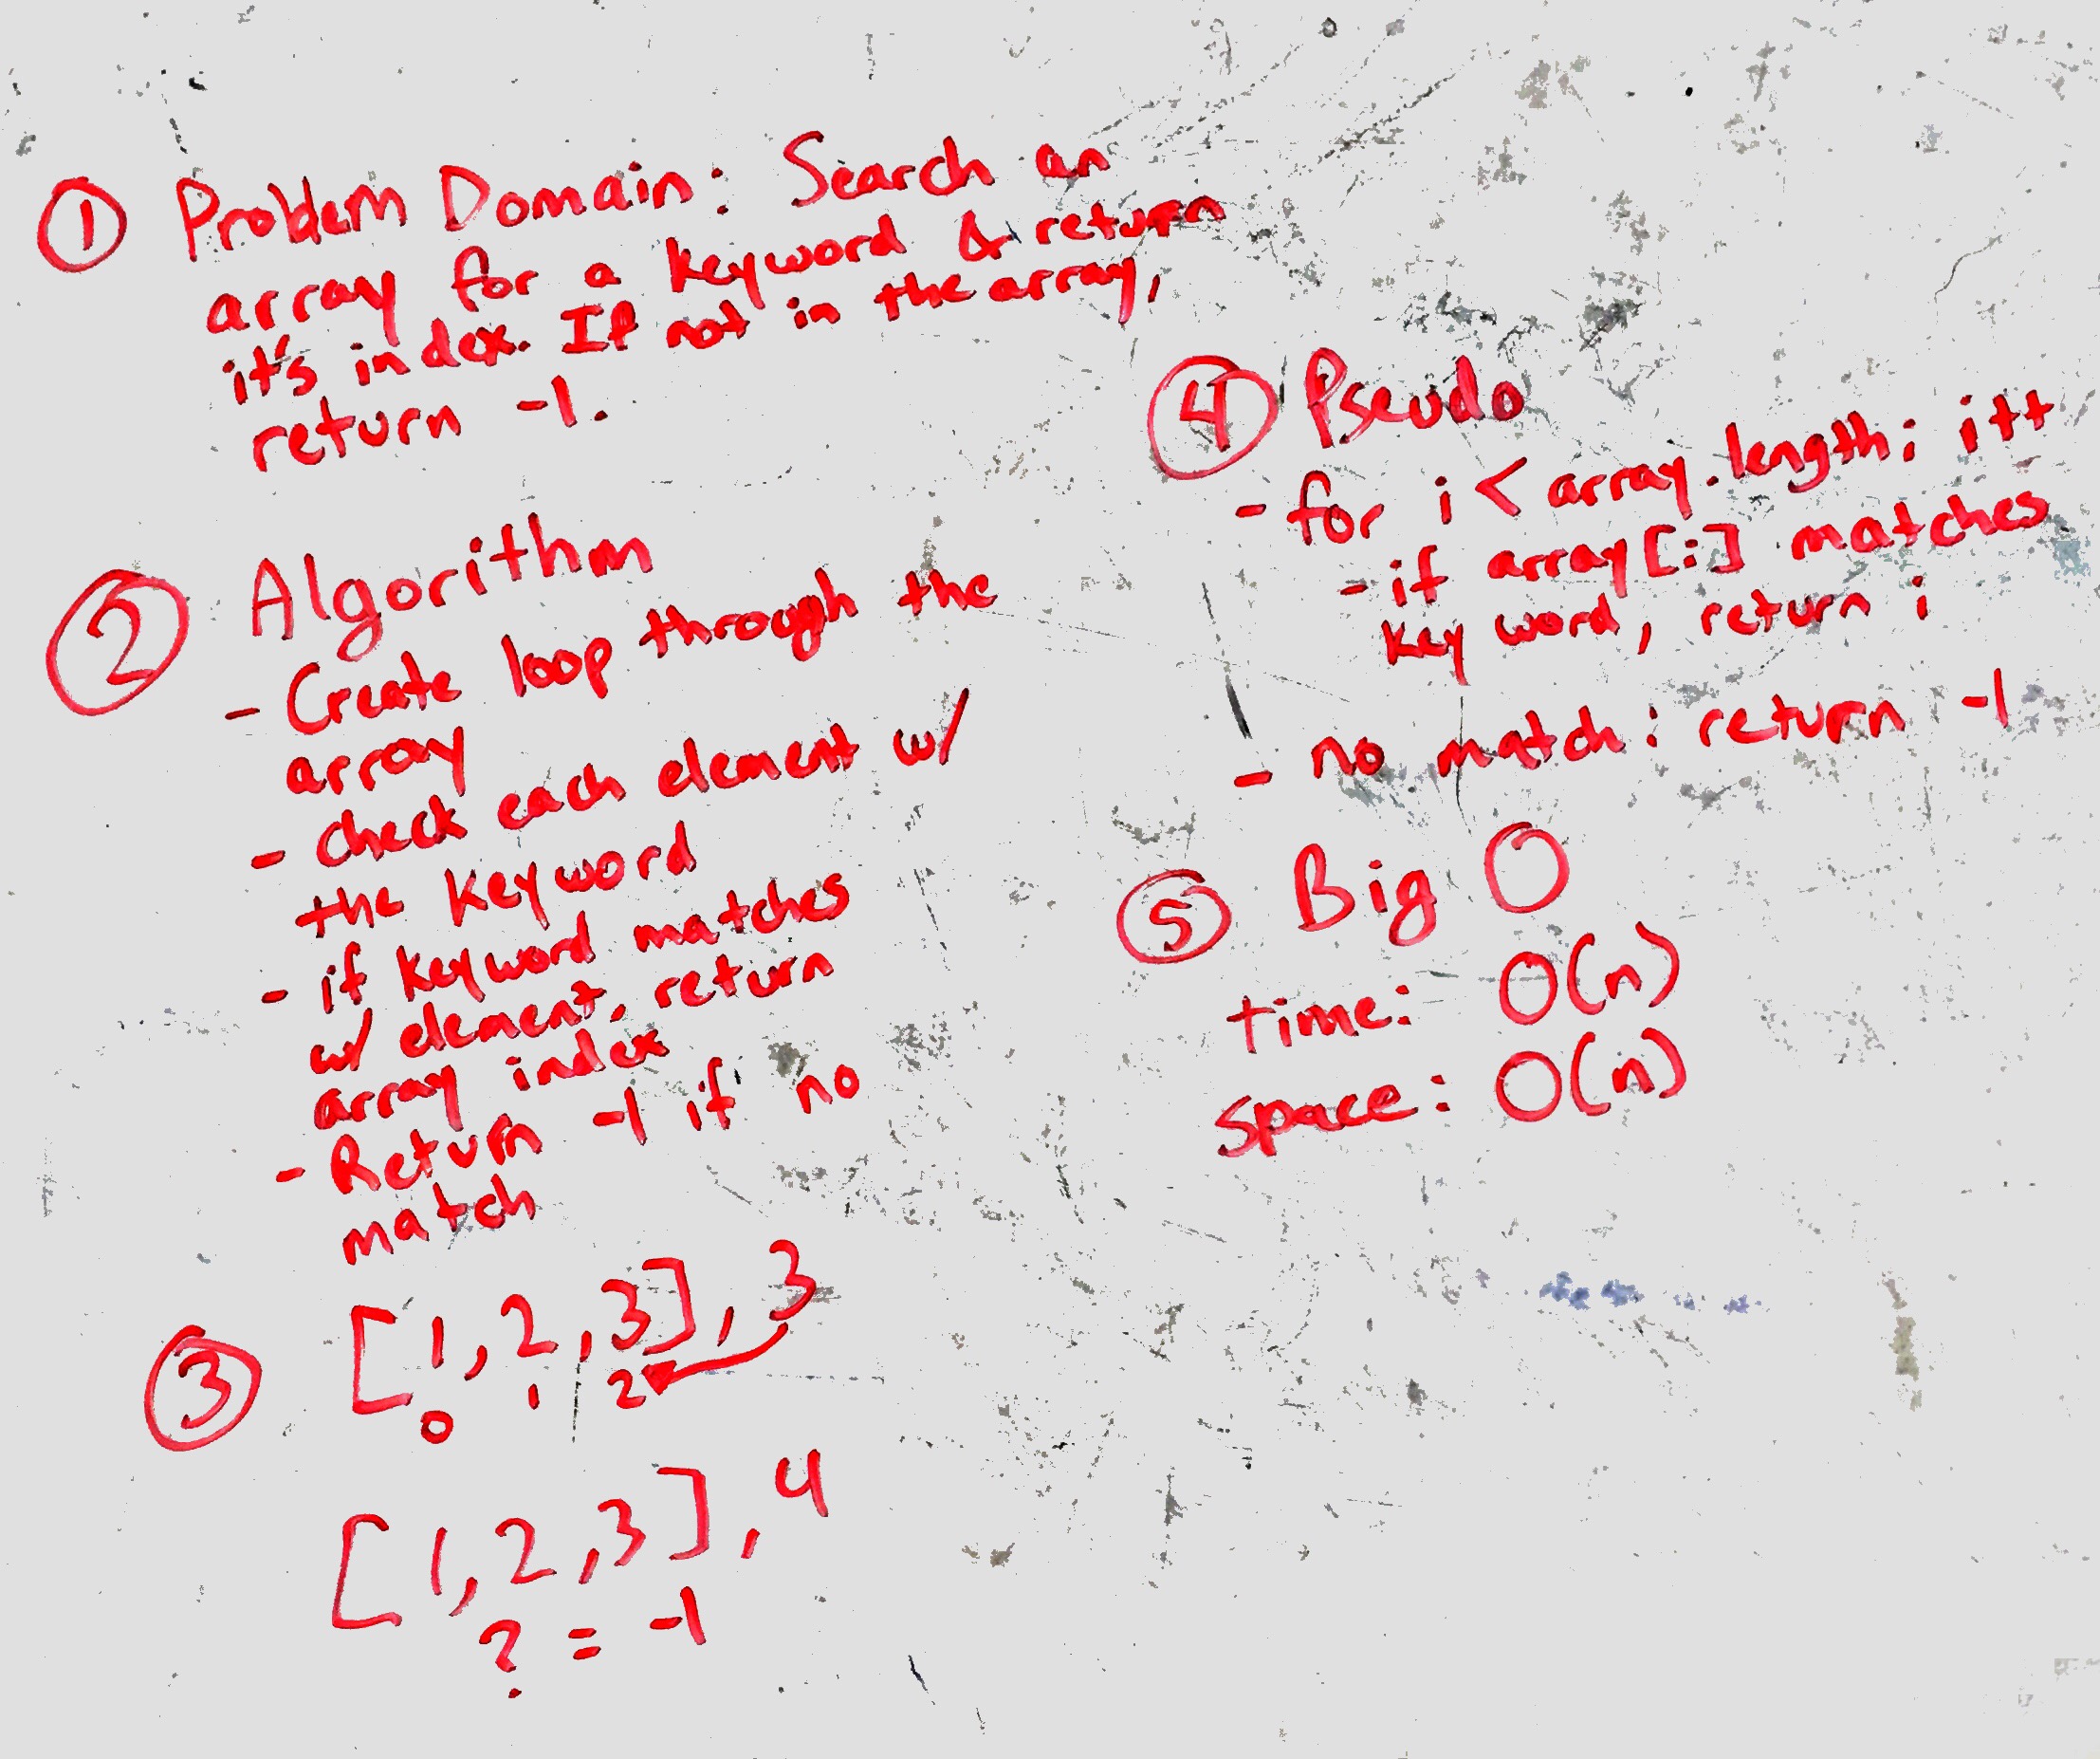 ① Problem Domain: Search an
array for a keyword & return
it's index. If not in the array,
return -1.
② Algorithm
- Create loop through the
array
- check each element w/
the keyword
- if keyword matches
w/ element, return
array index
- Return -1 if no
match
③ [1, 2, 3], 3
0 1 2
[1, 2, 3], 4
? = -1
④ Pseudo
- for i < array.length; i++
- if array[i] matches
key word, return i
- no match: return -1
⑤ Big O
time: O(n)
space: O(n)